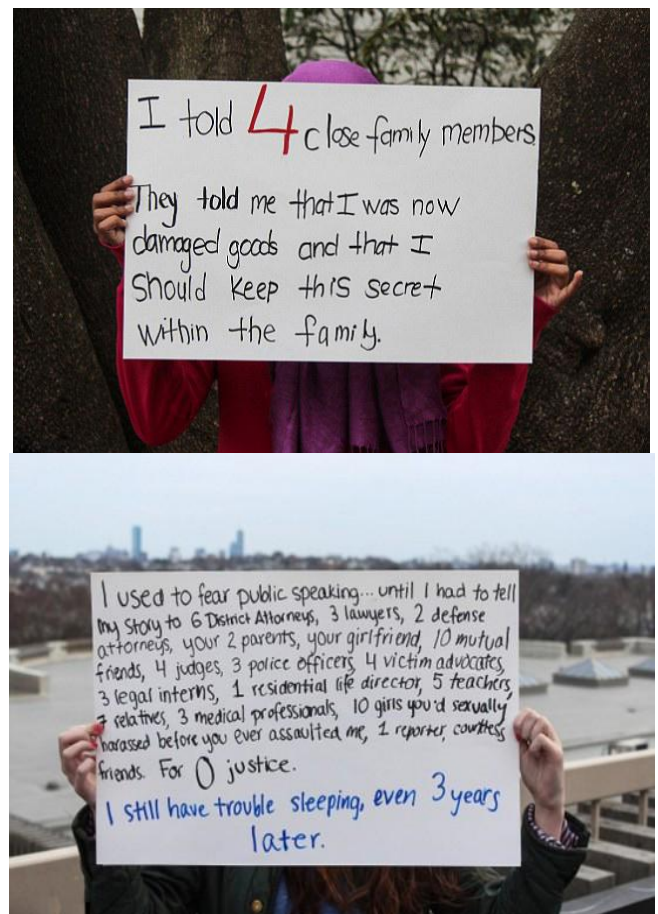 I told 4 close family members.
They told me that I was now
damaged goods and that I
Should keep this secret
within the family.
I used to fear public speaking... until I had to tell
my story to 6 District Attorneys, 3 lawyers, 2 defense
attorneys, your 2 parents, your girlfriend, 10 mutual
friends, 4 judges, 3 police officers, 4 victim advocates,
3 legal interns, 1 residential life director, 5 teachers,
7 relatives, 3 medical professionals, 10 girls you'd sexually
harassed before you ever assaulted me, 1 reporter, countless
friends. For 0 justice.
I still have trouble sleeping, even 3 years
later.